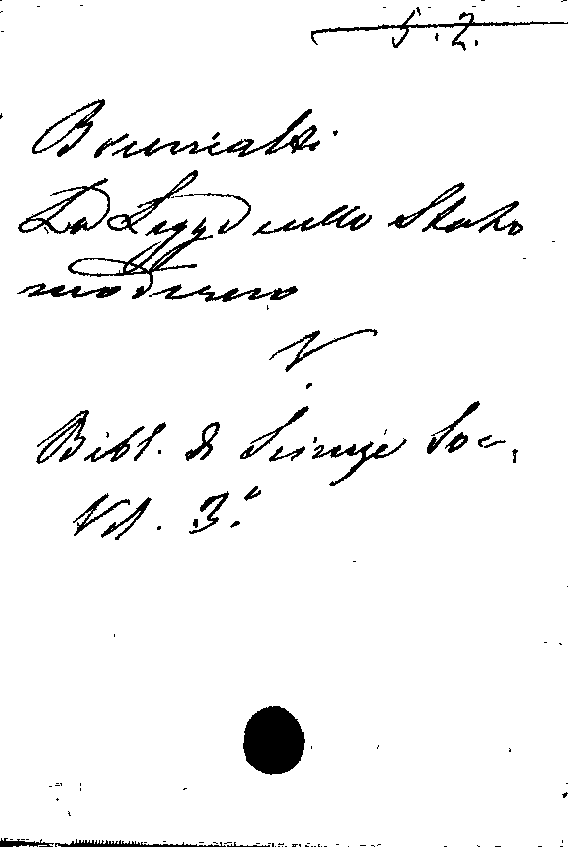 5.2.
Brunialti
La Legge nello Stato
moderno
V.
Bibl. di Scienze Soc.,
Vol. 3.º